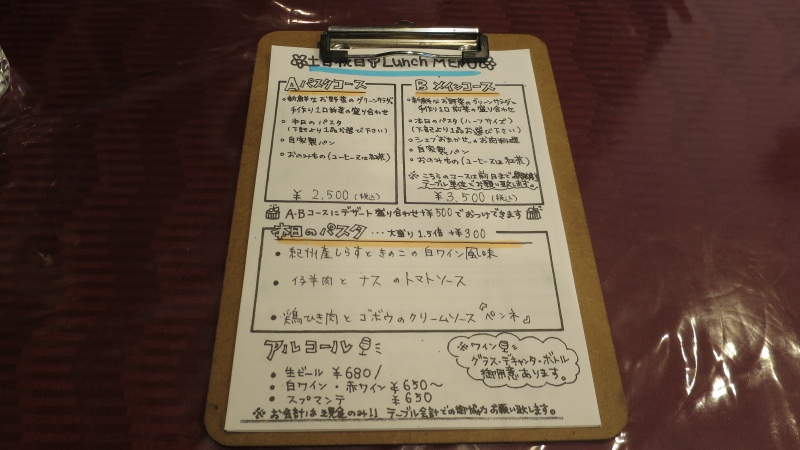 土日祝日 Lunch MENU
Aパスタコース
・新鮮なお野菜のグリーンサラダと
手作り1口前菜の盛り合わせ
・本日のパスタ
(下記より1品お選び下さい)
・自家製パン
・おのみもの(コーヒー又は紅茶)
¥2,500(税込)
B メインコース
・新鮮なお野菜のグリーンサラダと
手作り1口前菜の盛り合わせ
・本日のパスタ(ハーフサイズ)
(下記より1品お選び下さい)
・シェフおまかせのお肉料理
・自家製パン
・おのみもの(コーヒー又は紅茶)
※こちらのコースは前日まで
テーブル単位でお願い致します。
¥3,500(税込)
A・Bコースにデザート盛り合わせ+¥500でおつけできます
本日のパスタ …大盛り1.5倍 +¥300
・紀州産しらすときのこの白ワイン風味
・仔羊肉とナスのトマトソース
・鶏ひき肉とゴボウのクリームソース『ペンネ』
アルコール
・生ビール ¥680/
・白ワイン・赤ワイン ¥650〜
・スプマンテ ¥650
※ワイン
グラス・デキャンタ・ボトル
御用意あります。
※お会計は現金のみ!! テーブル会計での御協力お願い致します。